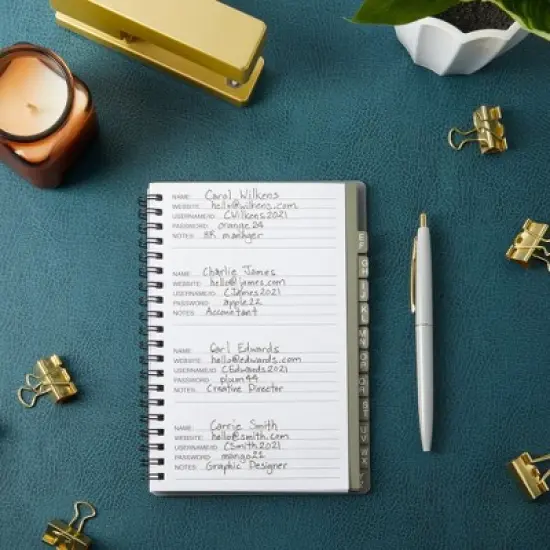 NAME: Carol Wilkens
WEBSITE: hello@wilkens.com
USERNAME/ID: CWilkens2021
PASSWORD: orange24
NOTES: HR manager
NAME: Charlie James
WEBSITE: hello@james.com
USERNAME/ID: CJames2021
PASSWORD: apple22
NOTES: Accountant
NAME: Carl Edwards
WEBSITE: hello@edwards.com
USERNAME/ID: CEdwards2021
PASSWORD: plum44
NOTES: Creative Director
NAME: Carrie Smith
WEBSITE: hello@smith.com
USERNAME/ID: CSmith2021
PASSWORD: mango21
NOTES: Graphic Designer
E F
G H
I J
K L
M N
O P
Q R
S T
U V
W X